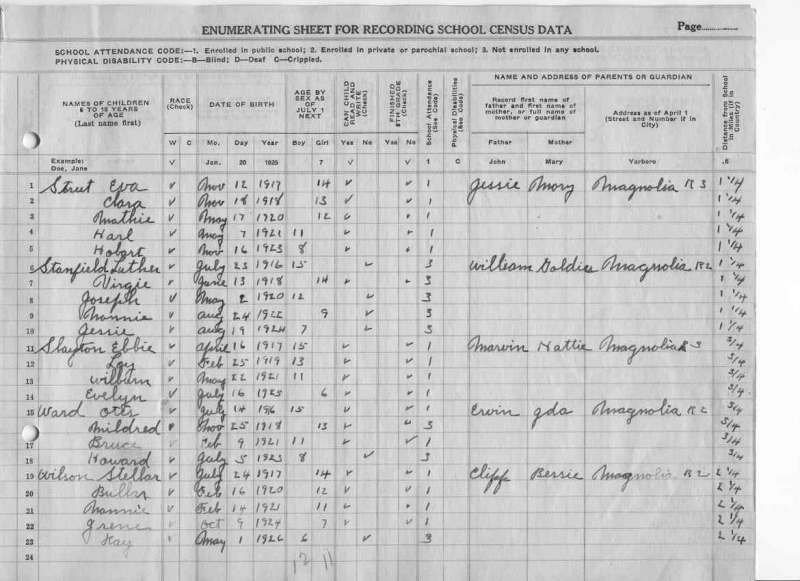 ENUMERATING SHEET FOR RECORDING SCHOOL CENSUS DATA Page
SCHOOL ATTENDANCE CODE:—1. Enrolled in public school; 2. Enrolled in private or parochial school; 3. Not enrolled in any school.
PHYSICAL DISABILITY CODE:—B—Blind; D—Deaf C—Crippled.
NAMES OF CHILDREN 6 TO 18 YEARS OF AGE (Last name first) RACE (Check) DATE OF BIRTH AGE BY SEX AS OF JULY 1 NEXT CAN CHILD READ AND WRITE (Check) FINISHED 8TH GRADE (Check) School Attendance (See Code) Physical Disabilities (See Code) NAME AND ADDRESS OF PARENTS OR GUARDIAN Record first name of father and first name of mother, or full name of mother or guardian Address as of April 1 (Street and Number if in City) Distance from School in Miles (if in Country)
W C Mo. Day Year Boy Girl Yes No Yes No Father Mother
Example: Doe, Jane √ Jan. 20 1925 7 √ √ 1 C John Mary Yarboro .5
1 Street Eva √ Nov 12 1917 14 √ √ 1 Jessie Mary Magnolia R 3 1 1/4
2 Clara √ Nov 18 1918 13 √ √ 1 1 1/4
3 Mathie √ May 17 1920 12 √ √ 1 1 1/4
4 Harl √ May 7 1921 11 √ √ 1 1 1/4
5 Hobart √ Nov 16 1923 8 √ √ 1 1 1/4
6 Stanfield Luther √ July 23 1916 15 √ 3 William Goldie Magnolia R2 1 1/4
7 Virgie √ June 13 1918 14 √ √ 3 1 1/4
8 Joseph √ May 2 1920 12 √ 3 1 1/4
9 Nannie √ Aug 24 1922 9 √ 3 1 1/4
10 Jessie √ Aug 19 1924 7 √ 3 1 1/4
11 Slayton Ebbie √ April 16 1917 15 √ √ 1 Marvin Hattie Magnolia R 3 3/4
12 Loy √ Feb 25 1919 13 √ √ 1 3/4
13 Wilburn √ May 22 1921 11 √ √ 1 3/4
14 Evelyn √ July 16 1925 6 √ √ 1 3/4
15 Ward Otis √ July 14 1916 15 √ √ 1 Ervin Ida Magnolia R 2 3/4
Mildred √ Nov 25 1918 13 √ √ 3 3/4
17 Bruce √ Feb 9 1921 11 √ √ 1 3/4
18 Howard √ July 5 1923 8 √ 3 3/4
19 Wilson Stellar √ July 24 1917 14 √ √ 1 Cliff Bessie Magnolia R 2 2 1/4
20 √ Feb 16 1920 12 √ √ 1 2 1/4
21 Nannie √ Feb 14 1921 11 √ √ 1 2 1/4
22 Irene √ Oct 9 1924 7 √ √ 1 2 1/4
23 Kay √ May 1 1926 6 √ 3 2 1/4
24
12 11